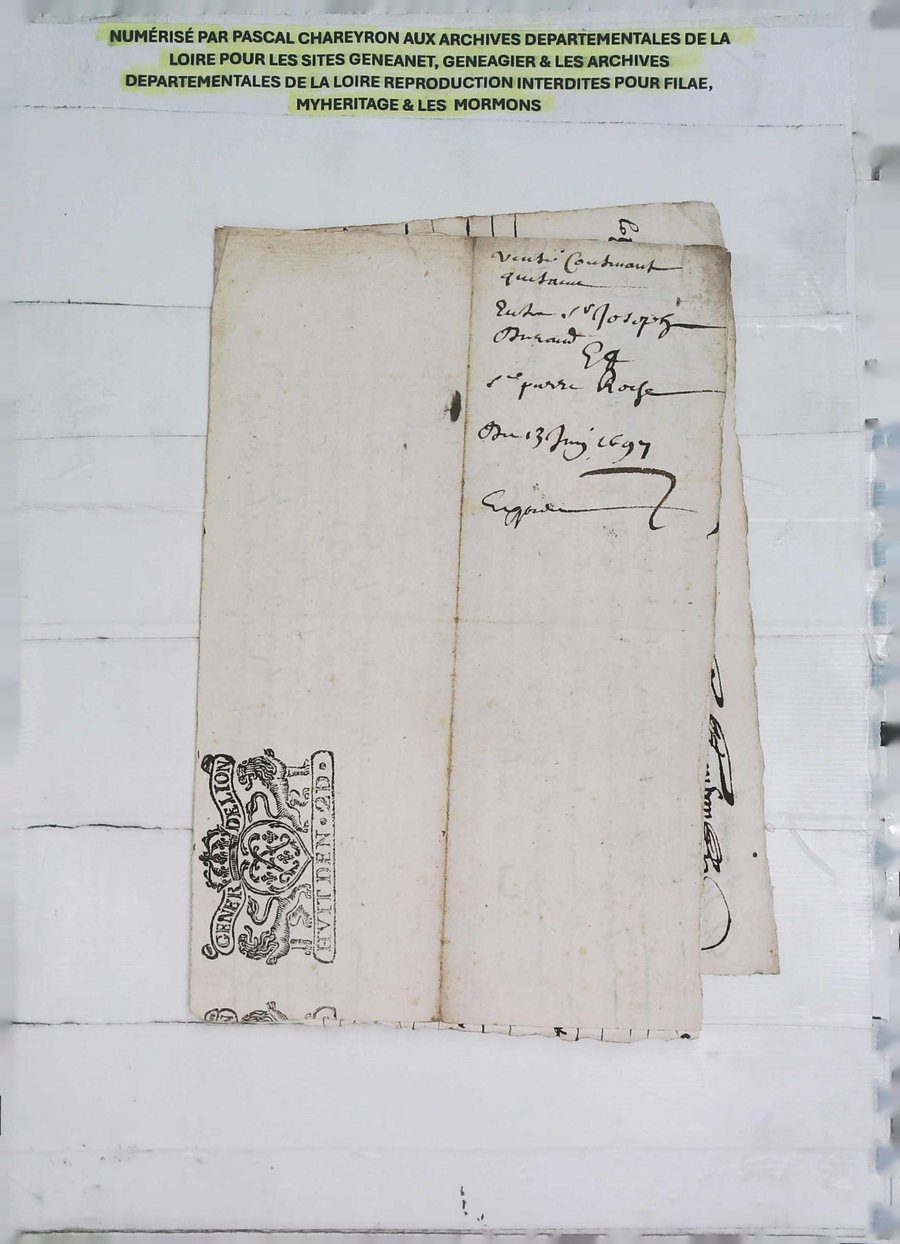 NUMÉRISÉ PAR PASCAL CHAREYRON AUX ARCHIVES DEPARTEMENTALES DE LA
LOIRE POUR LES SITES GENEANET, GENEAGIER & LES ARCHIVES
DEPARTEMENTALES DE LA LOIRE REPRODUCTION INTERDITES POUR FILAE,
MYHERITAGE & LES MORMONS
Vente Contenant
quitance
Entre Sr Joseph
Durand
Et
Sre pierre Roche
Du 13 Juin 1697
GENER DE LION
HVIT DEN. 2D.